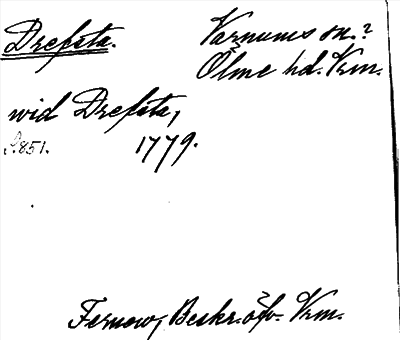 Drefsta.
Varnums sn.?
Ölme hd. Vrm.
wid Drefsta,
S.851. 1779.
Fernow, Beskr. öfv. Vrm.